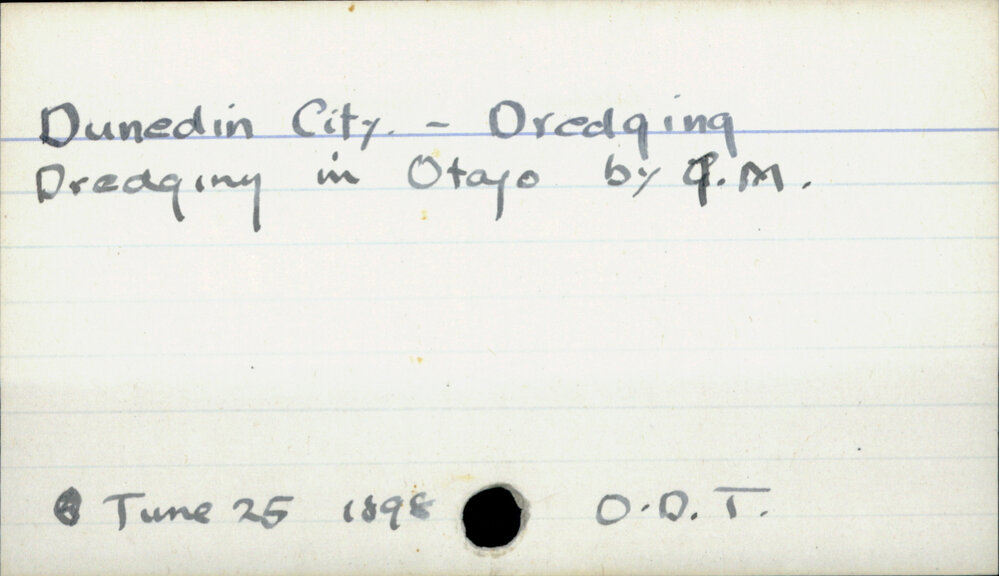 Dunedin City. - Dredging
Dredging in Otago by J.M.
June 25 1898 O.D.T.